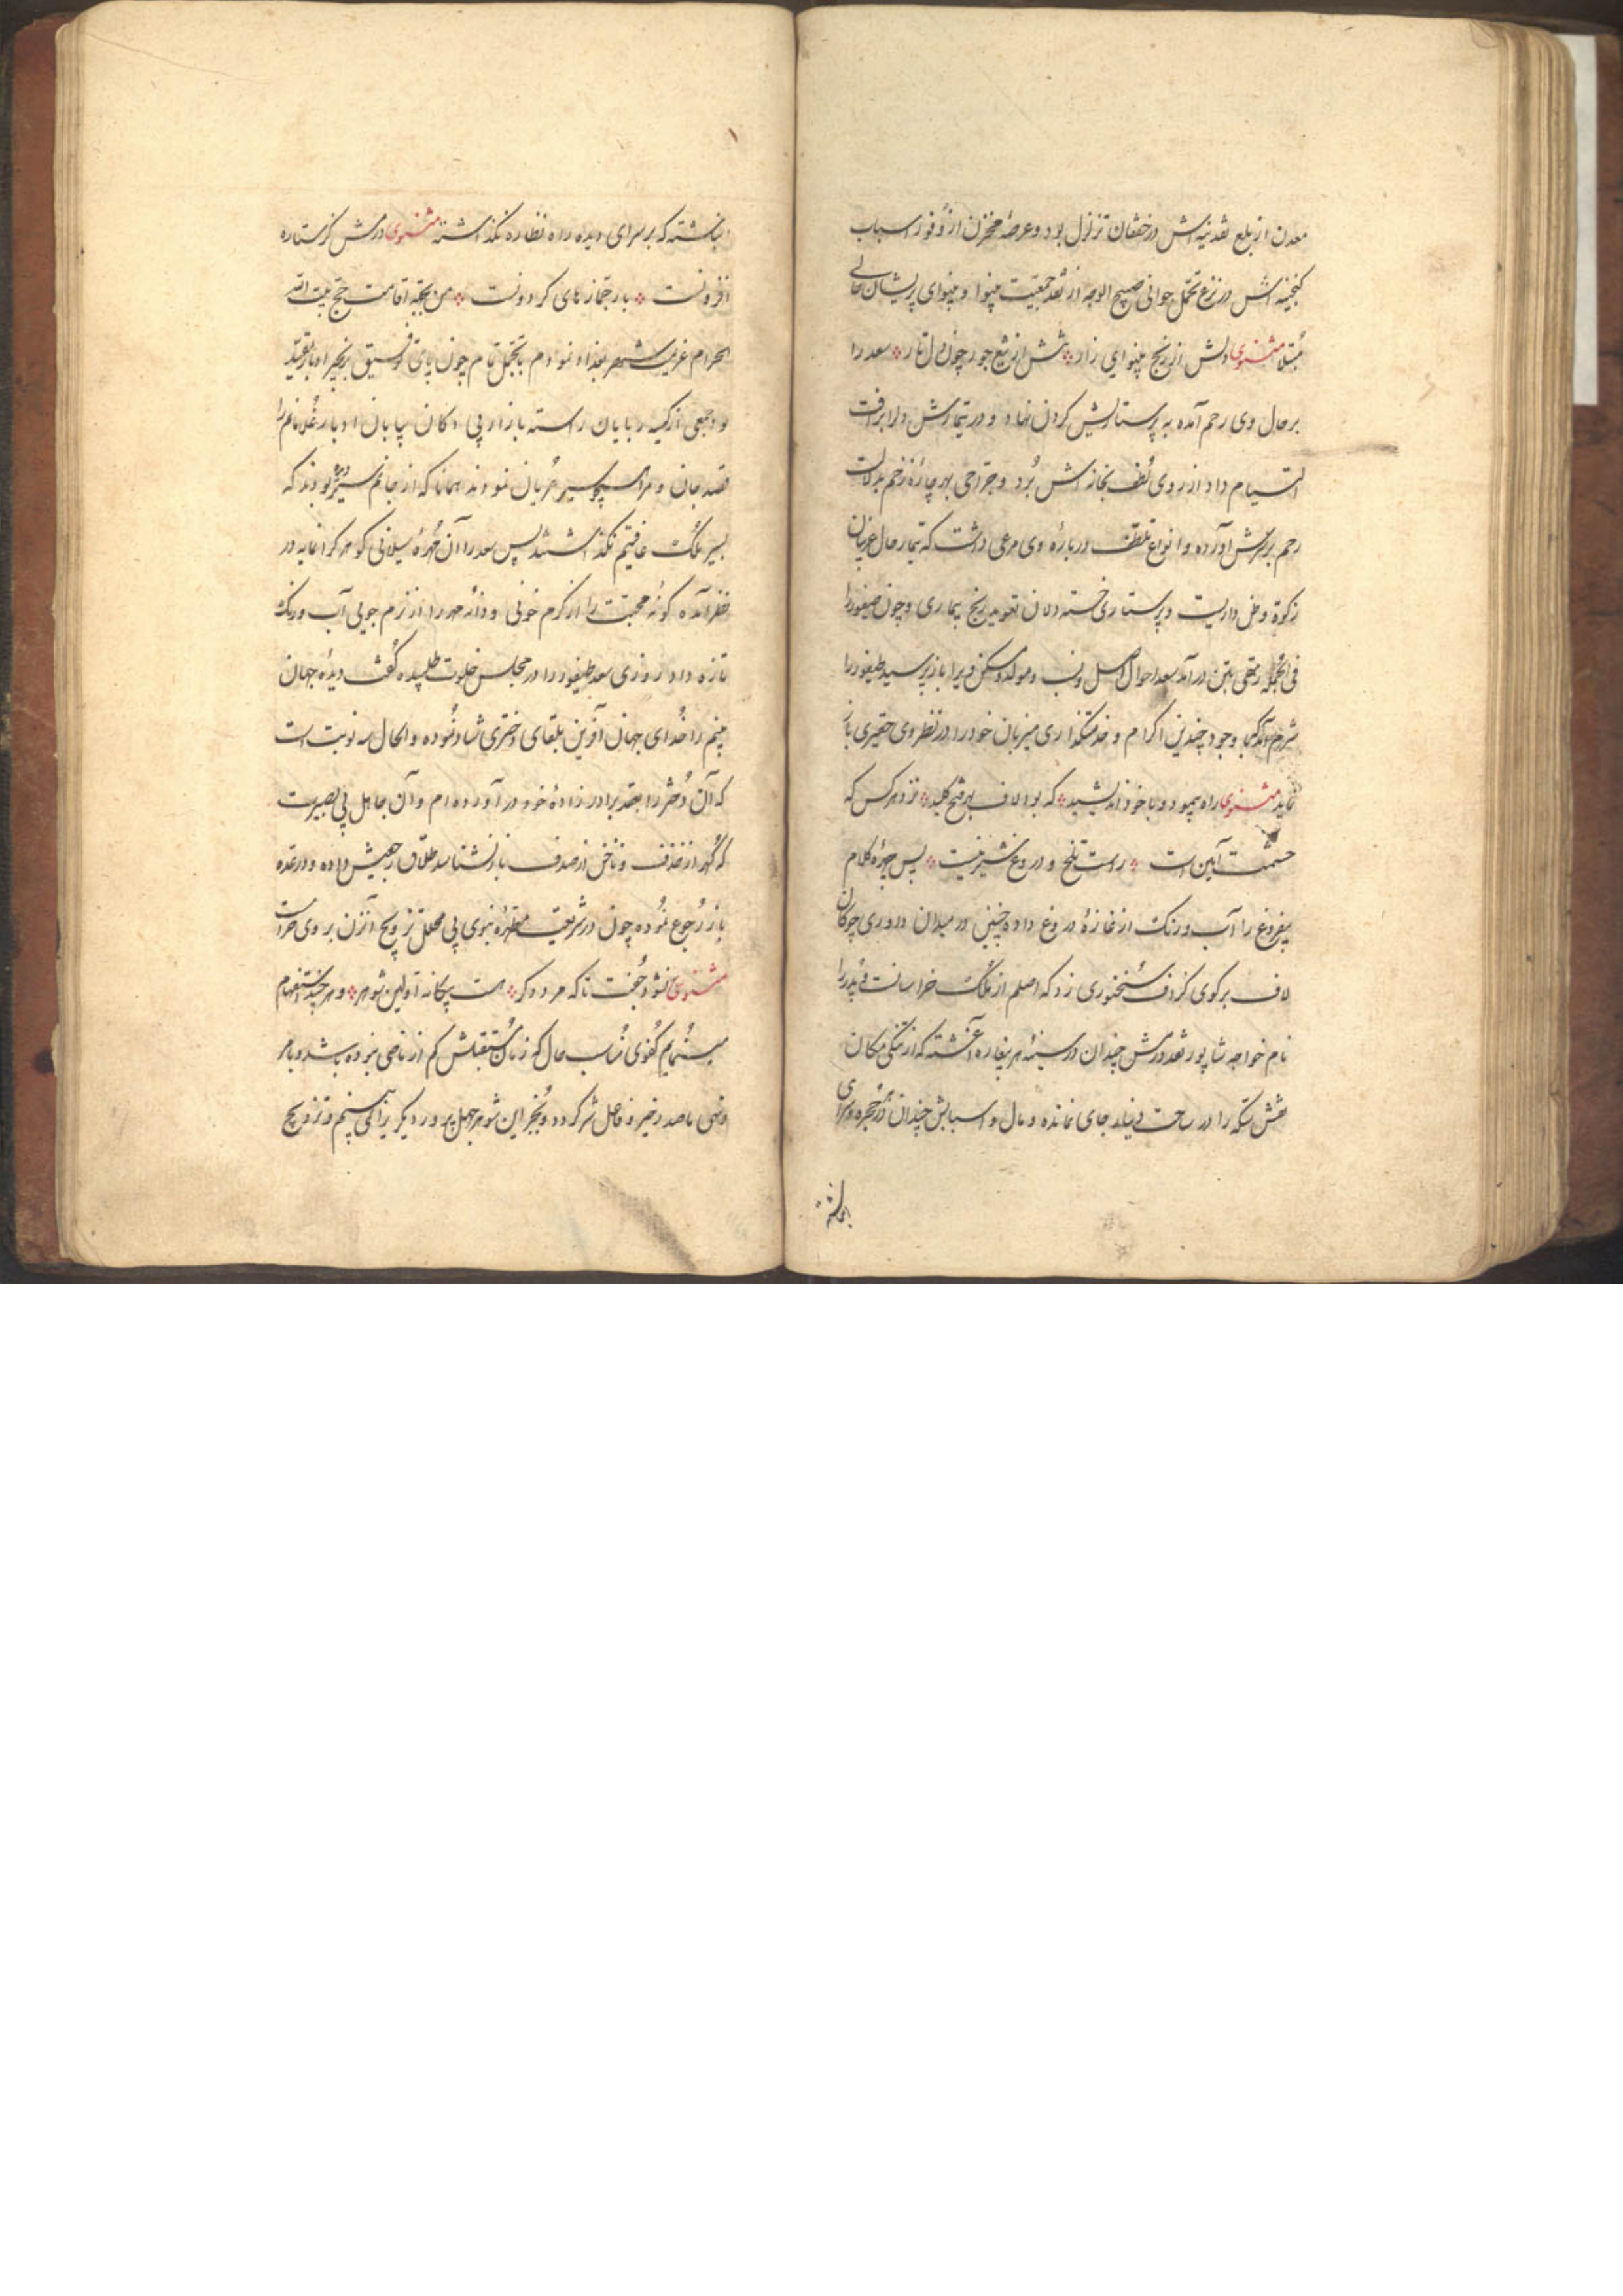 معدن از بلع نقدینه اش در خفقان تزلزل بود و عرصهٔ مخزن از وفور اسباب
کنجینه اش در نزع تحمل جوانی صبیح الوجه از نقد جمعیت بینوا و بینوای پریشان حالی
مبتلا مثنوی دلش از رنج بینوایی زار تنش از تیغ جور چون دل تار سعد را
بر حال وی رحم آمده به پرستاریش کردن نهاد و در تیمارش دل برافت
التیام داد از روی تلطف بخانه اش برد و جراحی بهر چارهٔ زخم بدلالت
رحم بر سرش آورده و انواع تلطف دربارهٔ وی مرعی داشت که تیمار حال غریبان
زکوة وطن داریست و پرستاری خسته دلان تعوید رنج بیماری و چون طیفور را
فی الجمله رمقی بتن درآمد سعد احوال اصل و نسب و مولد و مسکن ویرا باز پرسید طیفور را
شرم آمد که با وجود چندین اکرام و خدمتکذاری میزبان خود را در نظر وی حقیری باز
نماید مثنوی راه پیمود و با خود اندیشید که بود لاف بهر فتح کلید نزد هر کس که
حشمت آیین است راست تلخ و دروغ شیرینست پس چهرهٔ کلام
بیفروغ را آب و رنک از غازهٔ دروغ داده چنین در میدان داوری چوکان
لاف بر کوی کزاف سخنوری زد که اصلم از ملک خراسانست و پدر را
نام خواجه شاپور نقد درمش چندان در سینهٔ هر بیغاره آغشته که از تنکی مکان
نقش سکه را در ساحت دینار جای نمانده و مال و اسبابش چندان در حجره و سرای
انباشته
انباشته که بر سرای دیده راه نظاره نکذاشته مثنوی درمش کز ستاره
افزونست بار جمازهای کردونست من بجهة اقامت حج بیت الله
الحرام عزیمت شهر بغداد نمودم با تجمل تمام چون پای توفیق بزنجیر ادبار مقید
بود جمعی از کیسه ربایان راسته بازار بی دکان بیابان ادبار غلامانم را
قصد جان و مرا چون سیر عریان نمودند همانا که از جانم سیر بودند که
بسیر ملک عافیتم نکذاشتند پس سعد را آن مهرهٔ سیلانی کوهر کرانمایه در
نظر آمده کونهٔ محبت را از کرم خونی و دانهٔ مهر را از نرم جویی آب و رنک
تازه داد روزی سعد طیفور را در مجلس خلوت طلبیده کفت دیدهٔ جهان
بینم را خدای جهان آفرین بلقای دختری شاد نموده و الحال سه نوبت است
که آن دختر را بعقد برادر زادهٔ خود در آورده ام و آن جاهل بی بصیرت
که کهر از خذف و ناخن از صدف باز نشناسد طلاق رجعیش داده و در عده
باز رجوع نموده چون در شریعت مطهرهٔ نبوی بی محلل تزویج آنزن بروی حرامست
مثنوی نشود جفت تا که مرد دکر هست بیکانه اولین شوهر و هر چند استفهام
مینمایم کفوی مناسب حال که زمان مستقبلش کم از ماضی نبوده باشد و با هر
وقتی ماصد زخیر و فاصل شر کردد و بجز این شوهر جهل پرور دیکر یرا نمی بینم و تزویج